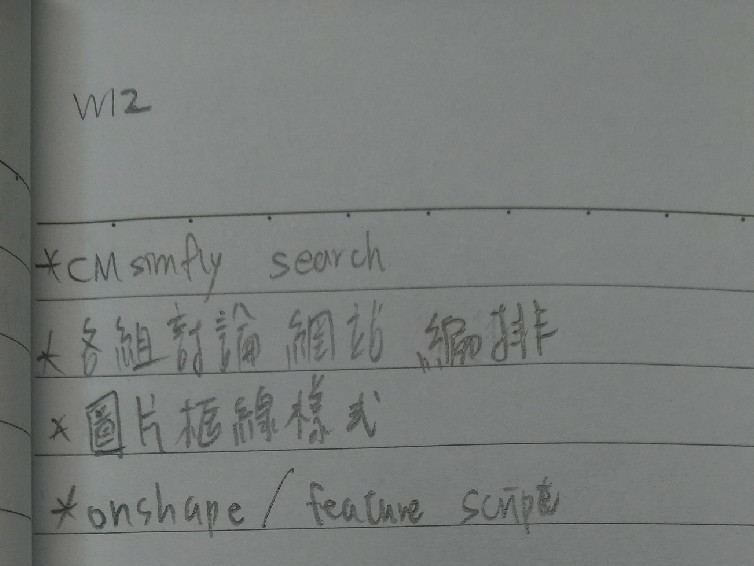 W12
*CMsimfly search
*各組討論網站 編排
*圖片框線樣式
*onshape/feature script